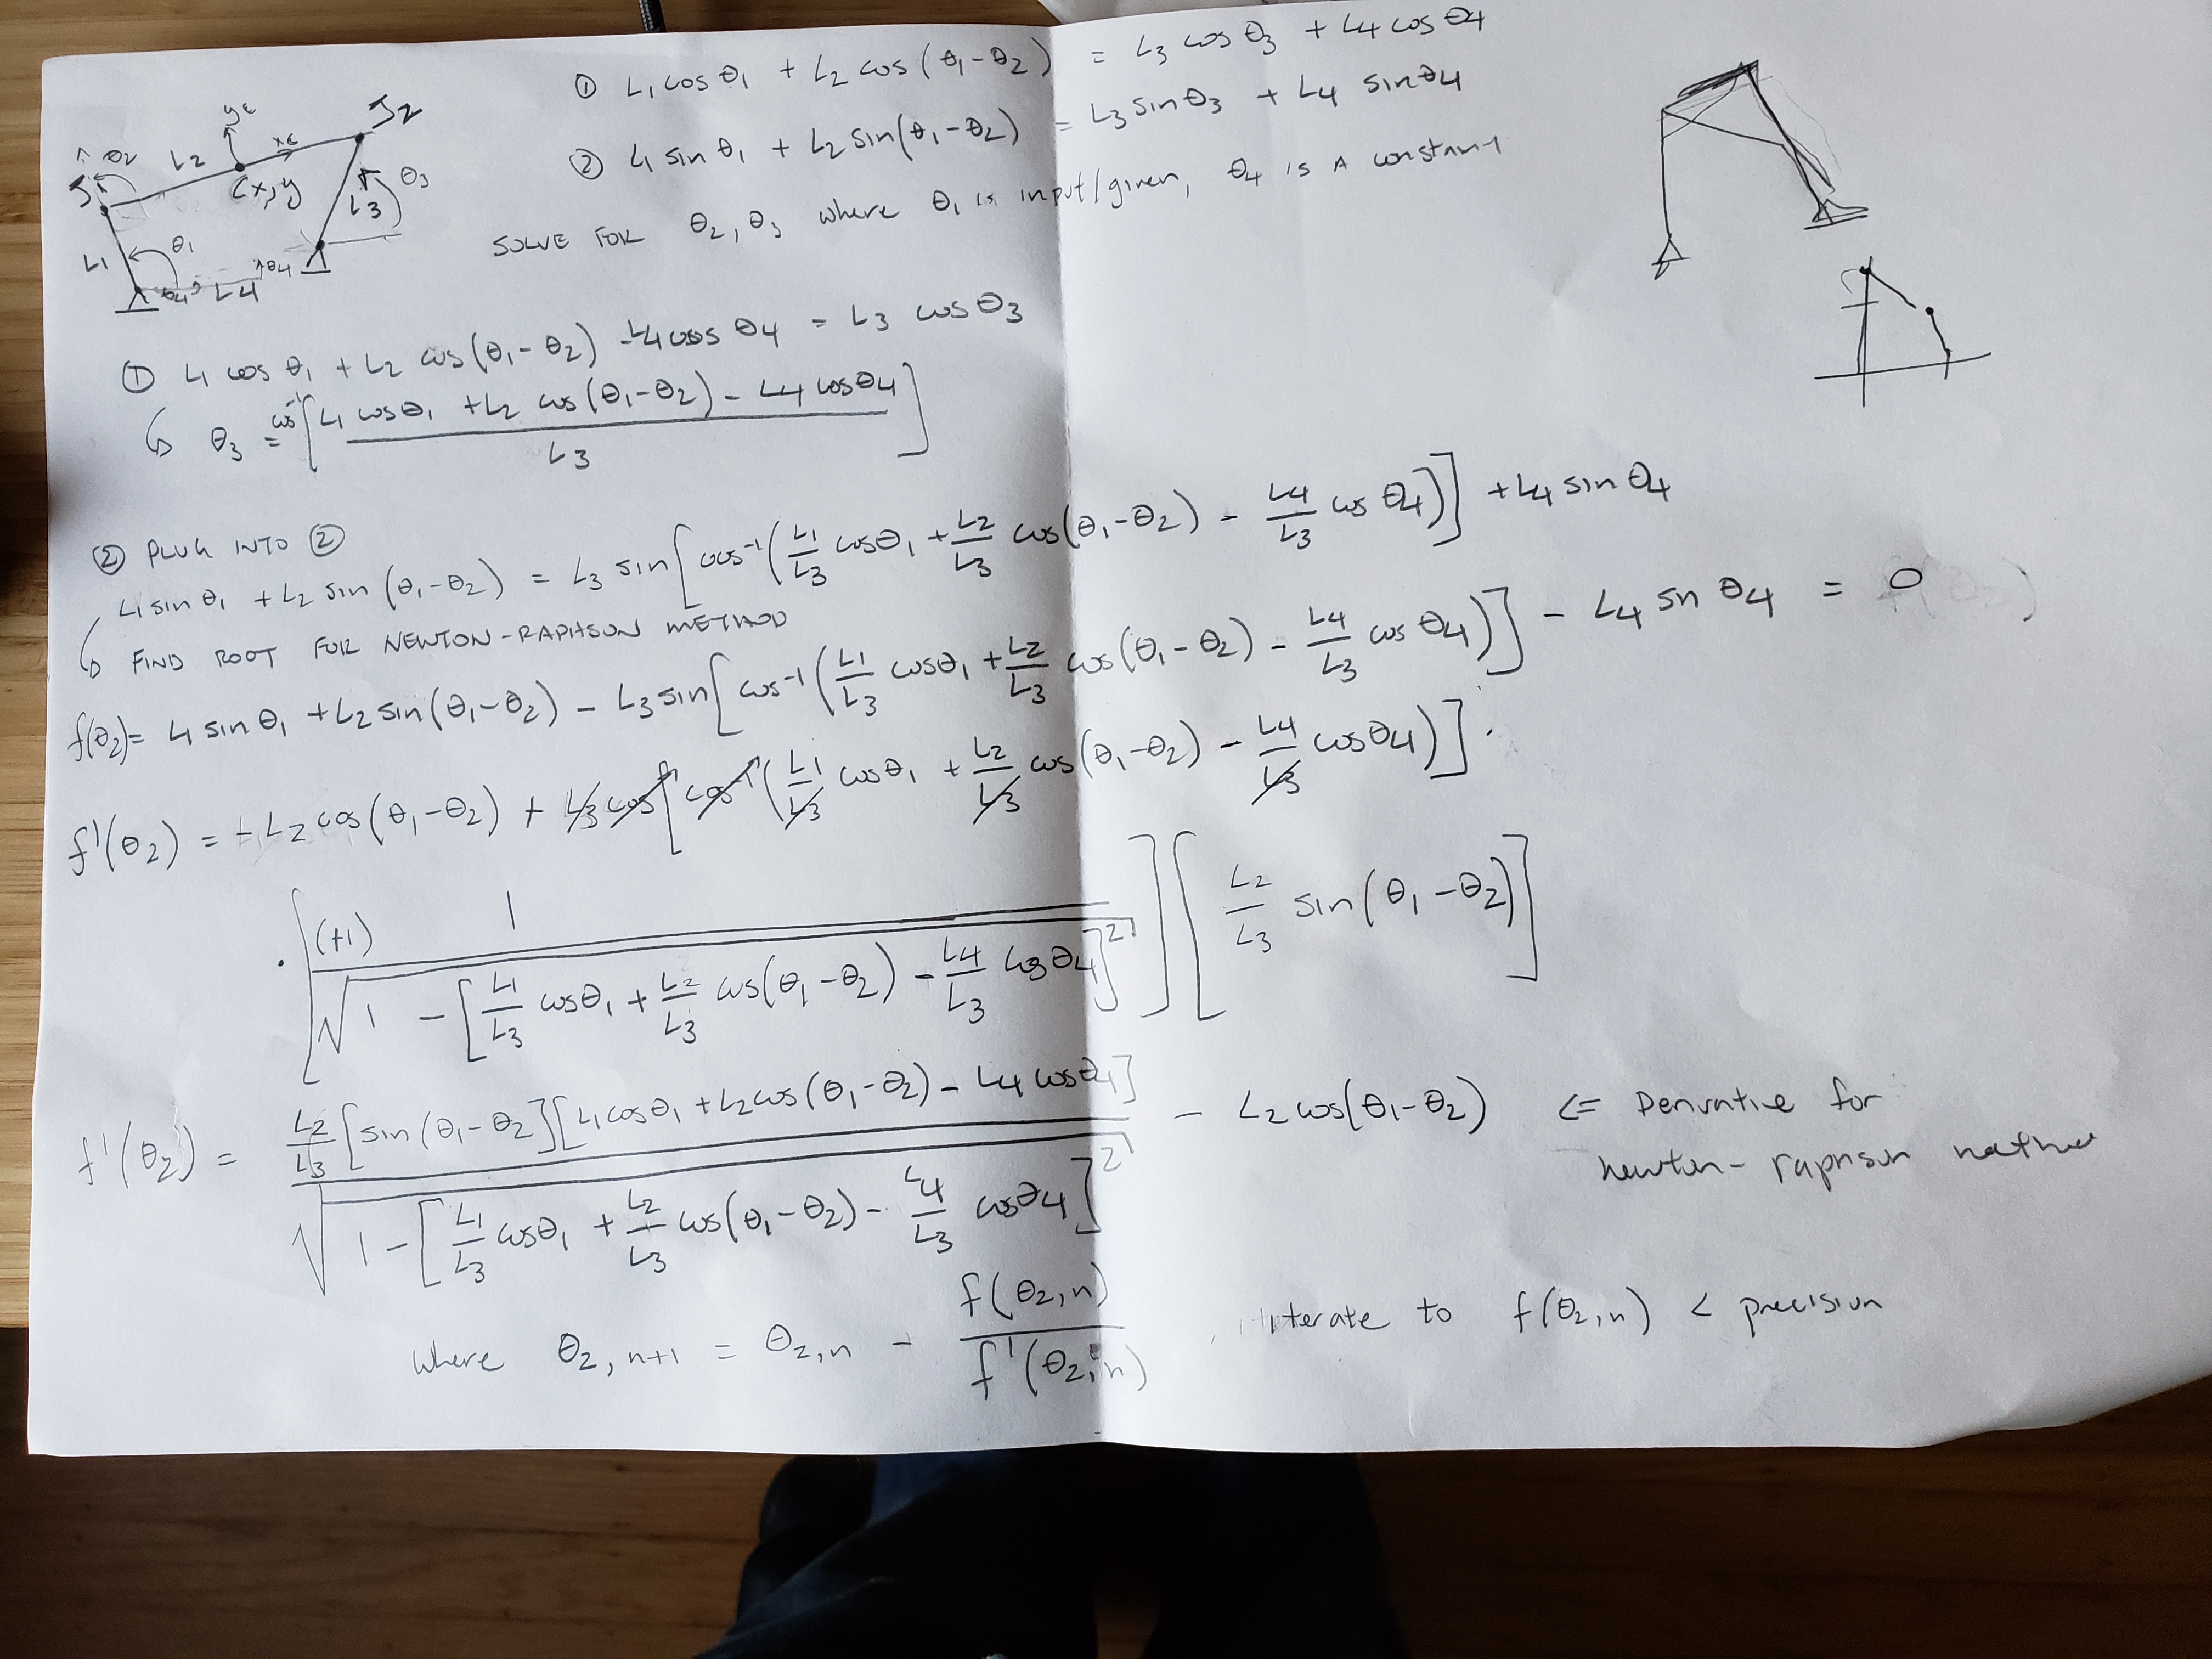 ① L1 cos θ1 + L2 cos (θ1-θ2) = L3 cos θ3 + L4 cos θ4
② L1 sin θ1 + L2 sin(θ1-θ2) = L3 sin θ3 + L4 sin θ4
SOLVE FOR θ2, θ3 where θ1 is input/given, θ4 is A constant
yc
xc
J2
θ2
L2
J
(x,y
θ3
L3
θ1
L1
θ4
θ4
L4
① L1 cos θ1 + L2 cos(θ1-θ2) - L4 cos θ4 = L3 cos θ3
↳ θ3 = cos⁻¹[(L1 cosθ1 + L2 cos(θ1-θ2) - L4 cosθ4)/L3]
② PLUG INTO ②
L1 sin θ1 + L2 sin (θ1-θ2) = L3 sin[cos⁻¹(L1/L3 cosθ1 + L2/L3 cos(θ1-θ2) - L4/L3 cos θ4)] + L4 sin θ4
↳ FIND ROOT FOR NEWTON-RAPHSON METHOD
f(θ2)= L1 sin θ1 + L2 sin(θ1-θ2) - L3 sin[cos⁻¹(L1/L3 cosθ1 + L2/L3 cos(θ1-θ2) - L4/L3 cos θ4)] - L4 sn θ4 = 0
f'(θ2) = -L2 cos(θ1-θ2) + L3 cos[cos⁻¹(L1/L3 cosθ1 + L2/L3 cos(θ1-θ2) - L4/L3 cosθ4)] ·
· [(+1) 1/√(1 - [L1/L3 cosθ1 + L2/L3 cos(θ1-θ2) - L4/L3 cos θ4]²)] [L2/L3 sin(θ1-θ2)]
f'(θ2) = L2/L3 [sin(θ1-θ2][L1 cosθ1 + L2 cos(θ1-θ2) - L4 cosθ4]/√(1-[L1/L3 cosθ1 + L2/L3 cos(θ1-θ2) - L4/L3 cosθ4]²) - L2 cos(θ1-θ2) <= Derivative for
newton-raphson
where θ2,n+1 = θ2,n - f(θ2,n)/f'(θ2,n) , iterate to f(θ2,n) < precision